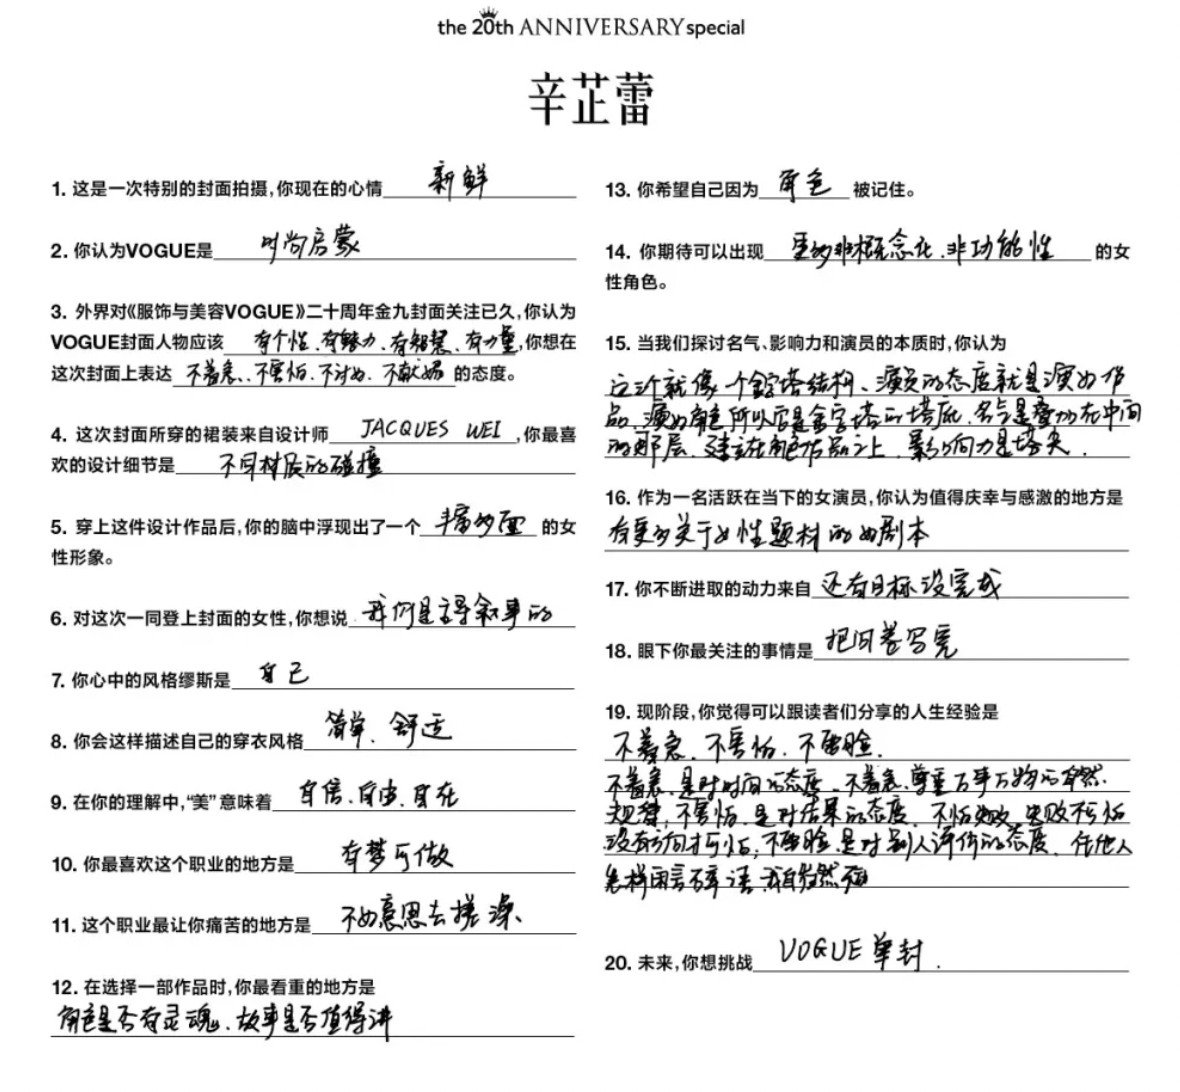 the 20th ANNIVERSARY special
辛芷蕾
1. 这是一次特别的封面拍摄,你现在的心情 新鲜
2. 你认为VOGUE是 时尚启蒙
3. 外界对《服饰与美容VOGUE》二十周年金九封面关注已久,你认为
VOGUE封面人物应该 有个性、有魅力、有智慧、有力量,你想在
这次封面上表达 不着急、不害怕、不讨好、不献媚 的态度。
4. 这次封面所穿的裙装来自设计师 JACQUES WEI,你最喜
欢的设计细节是 不同材质的碰撞
5. 穿上这件设计作品后,你的脑中浮现出了一个 丰富多面 的女
性形象。
6. 对这次一同登上封面的女性,你想说 我们是主导叙事的
7. 你心中的风格缪斯是 自己
8. 你会这样描述自己的穿衣风格 简单、舒适
9. 在你的理解中,“美”意味着 自信、自由、自在
10. 你最喜欢这个职业的地方是 有梦可做
11. 这个职业最让你痛苦的地方是 不好意思去搓澡
12. 在选择一部作品时,你最看重的地方是
角色是否有灵魂、故事是否值得讲
13. 你希望自己因为 角色 被记住。
14. 你期待可以出现 更多非概念化、非功能性 的女
性角色。
15. 当我们探讨名气、影响力和演员的本质时,你认为
这个就像一个金字塔结构、演员的态度就是演好作
品、演好角色所以它是金字塔的塔底、名气是叠加在中间
的那层、建立在角色作品之上、影响力是塔尖.
16. 作为一名活跃在当下的女演员,你认为值得庆幸与感激的地方是
有更多关于女性题材的好剧本
17. 你不断进取的动力来自 还有目标没完成
18. 眼下你最关注的事情是 把问卷写完
19. 现阶段,你觉得可以跟读者们分享的人生经验是
不着急、不害怕、不要脸.
不着急、是对时间的态度、不着急、尊重万事万物的自然
规律,不害怕、是对结果的态度、不怕失败、失败不可怕
没有方向才可怕,不要脸、是对别人评价的态度、任他人
怎样闲言碎语、我自岿然
20. 未来,你想挑战 VOGUE单封.